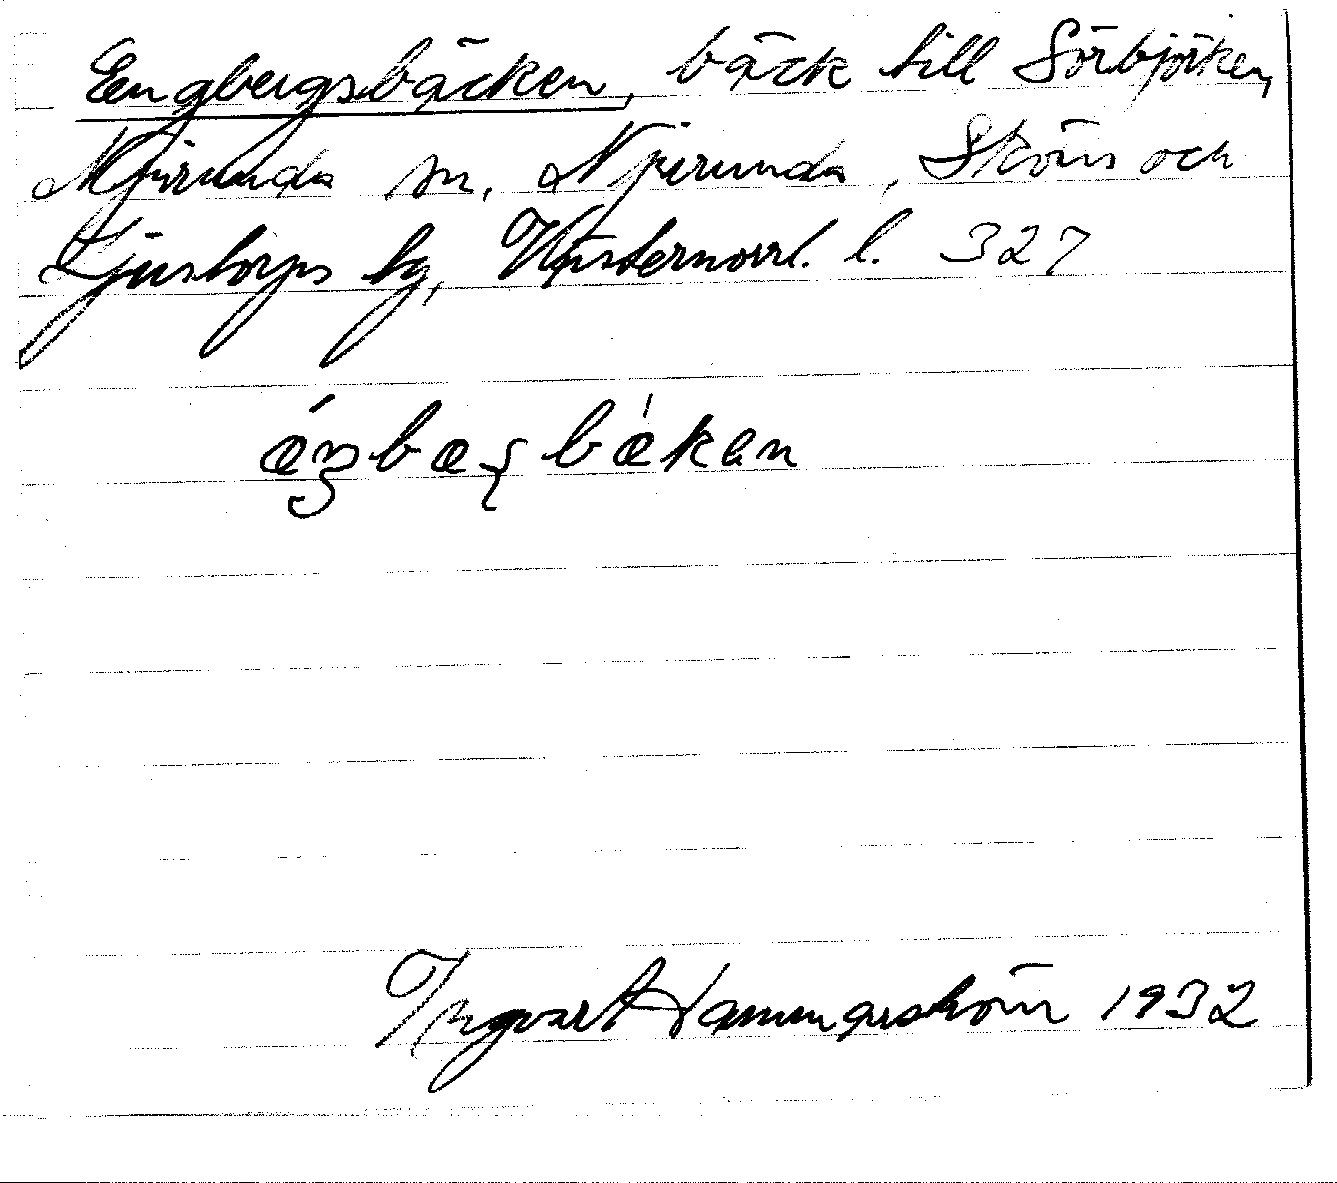 Engbergsbäcken, bäck till Sörbjörken,
Njurunda sn, Njurunda, Sköns och
Ljustorps tg, Västernorrl. l. 327
Ingvart Hammarström 1932